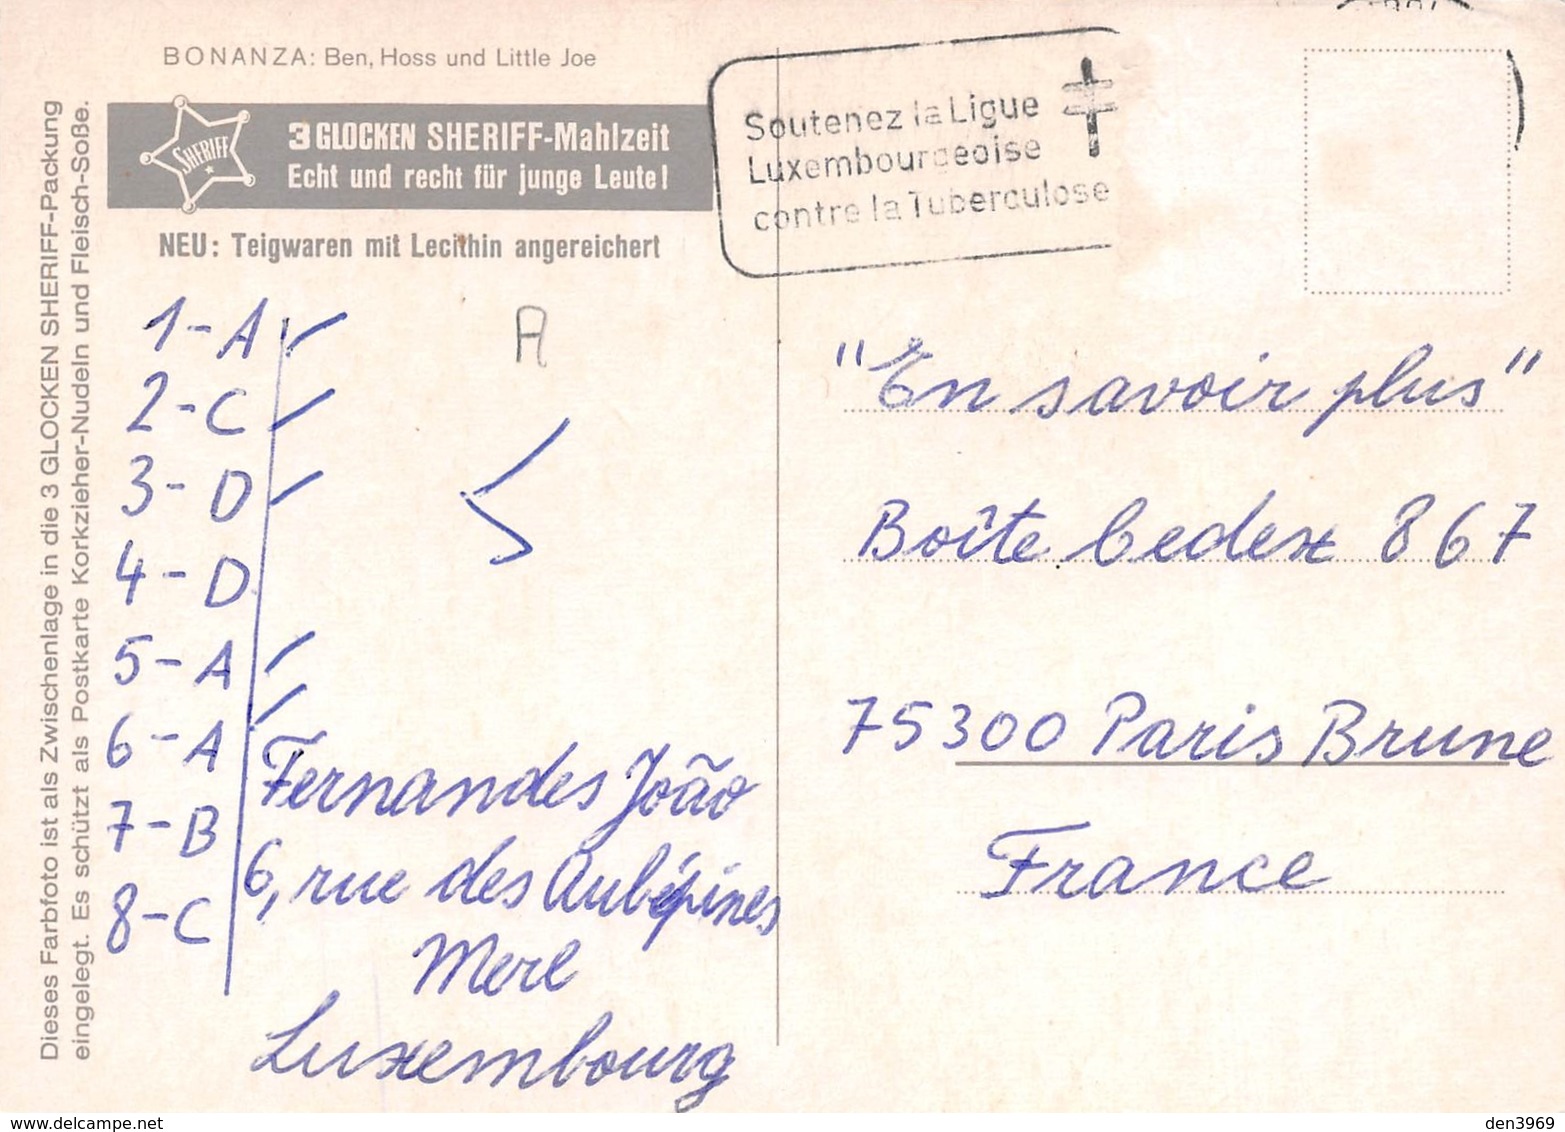 BONANZA: Ben, Hoss und Little Joe
SHERIFF
3 GLOCKEN SHERIFF-Mahlzeit
Echt und recht für junge Leute!
NEU: Teigwaren mit Lecithin angereichert
Dieses Farbfoto ist als Zwischenlage in die 3 GLOCKEN SHERIFF-Packung
eingelegt. Es schützt als Postkarte Korkzieher-Nudeln und Fleisch-Soße.
Soutenez la Ligue
Luxembourgeoise
contre la Tuberculose
1-A
2-C
3-D
4-D
5-A
6-A
7-B
8-C
A
Fernandes João
6, rue des Aubépines
Merl
Luxembourg
"En savoir plus"
Boîte Cedex 867
75300 Paris Brune
France
den3969